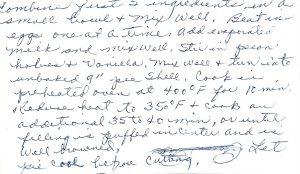 Combine first 5 ingredients in a
small bowl & Mix Well. Beat in
eggs one at a time. Add evaporated
milk and mix well. Stir in pecan
halves & Vanilla. Mix well & turn into
unbaked 9" pie shell. Cook in
preheated oven at 400°F for 10 min.
Reduce heat to 350°F & cook an
additional 35 to 40 min, or until
filling is puffed in center and is
well browned. Let
pie cool before cutting.